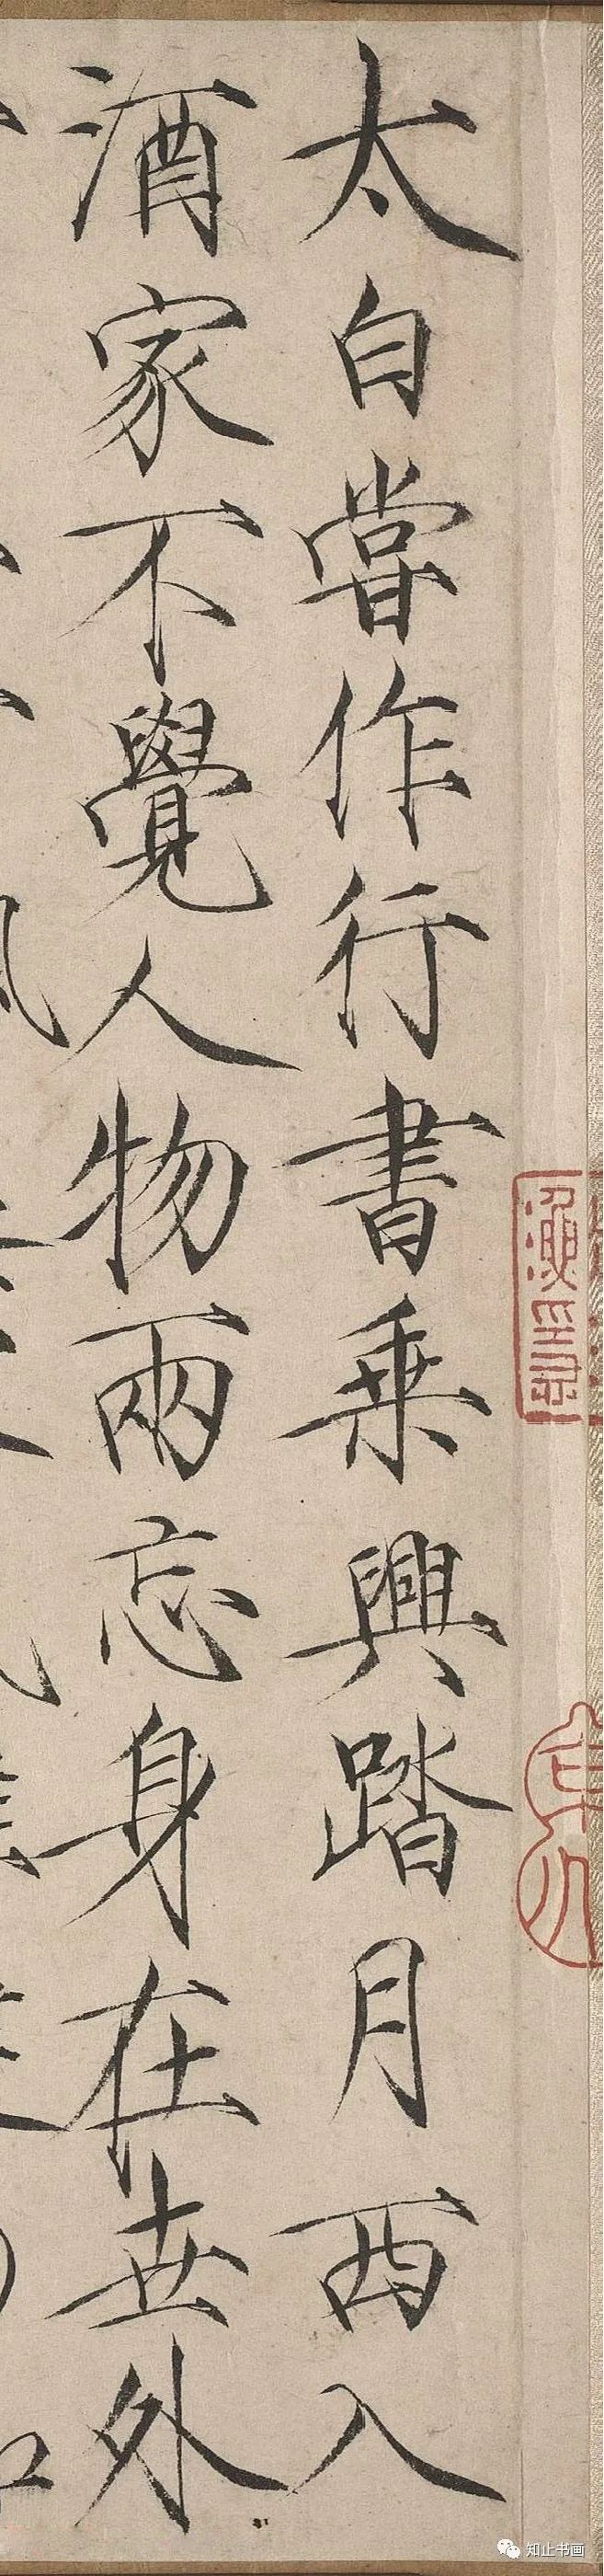 太白嘗作行書乗興踏月西入
酒家不覺人物兩忘身在世外
知止书画